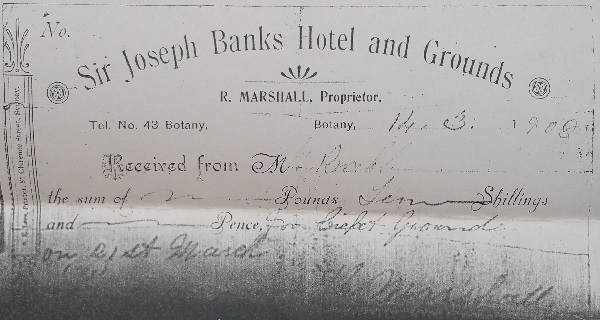 No.
Sir Joseph Banks Hotel and Grounds
R. MARSHALL, Proprietor.
Tel. No. 43 Botany, Botany, 14.3. 1908
Received from M
the sum of Pounds Ten Shillings
and Pence, for Cricket Ground
on 21st March.
R Marshall